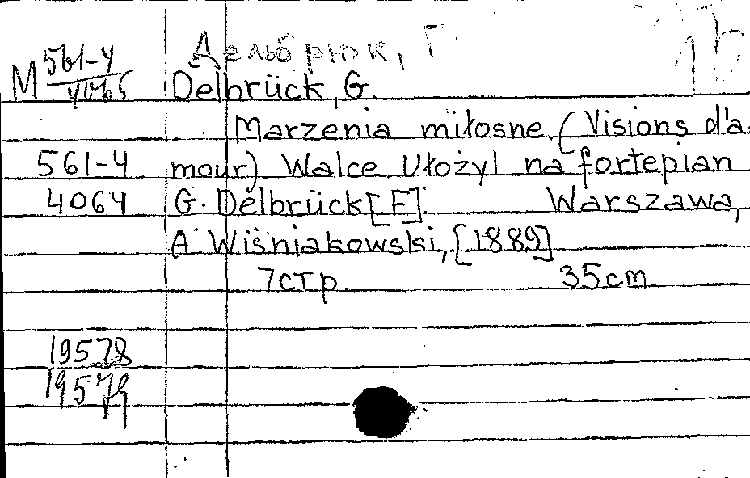 Дельбрюк, Г.
М 561-4
Delbrück, G.
Marzenia miłosne. (Visions d'a-
561-4 mour) Walce Ułożył na fortepian
4064 G. Delbrück [F]. Warszawa,
A. Wiśniakowski, [1889]
7 стр 35 cm
19578
19579